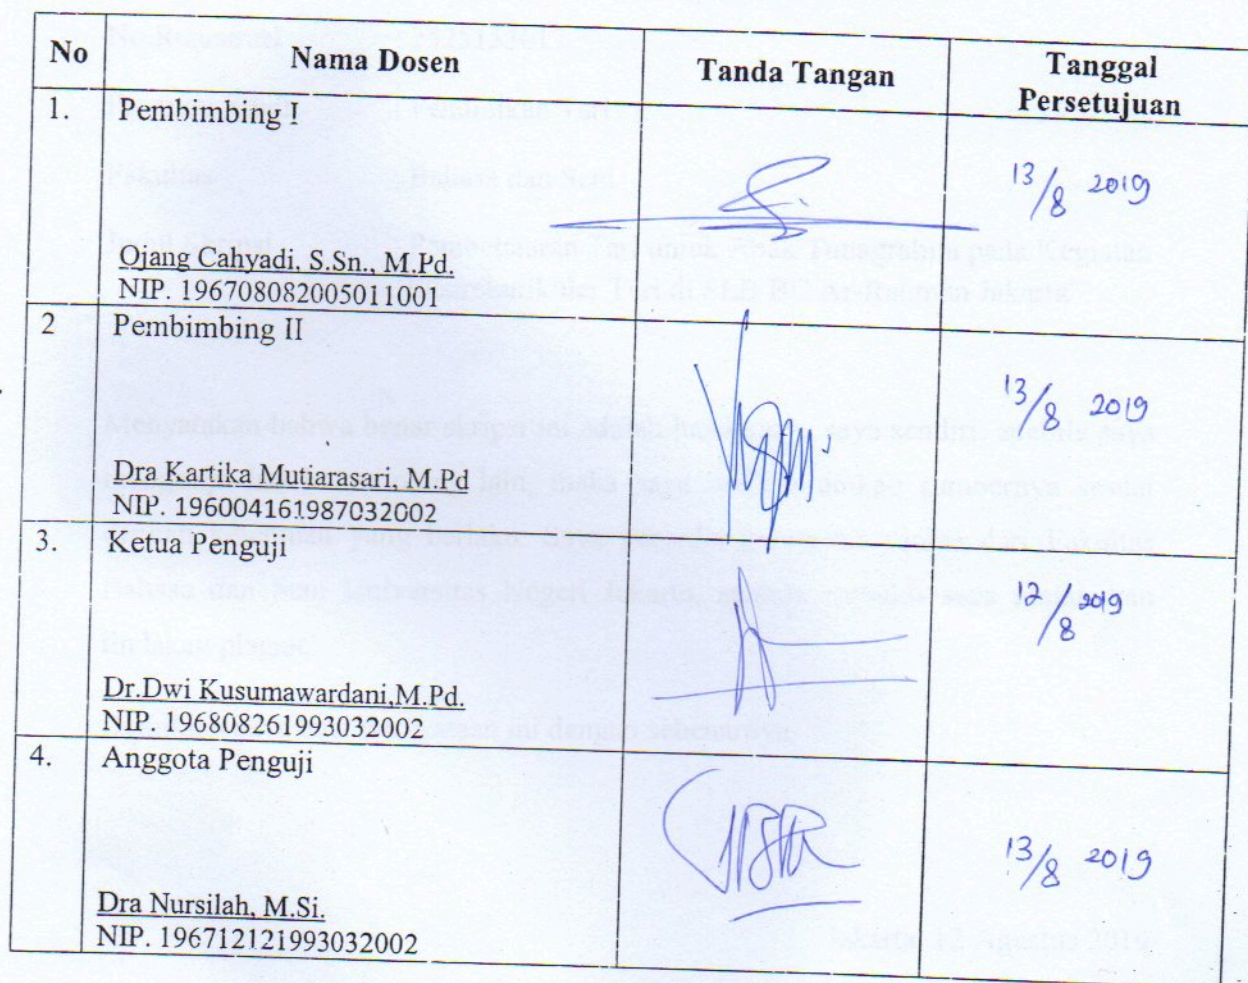 No Nama Dosen Tanda Tangan Tanggal
Persetujuan
1. Pembimbing I
13/8 2019
Ojang Cahyadi, S.Sn., M.Pd.
NIP. 196708082005011001
2 Pembimbing II
13/8 2019
Dra Kartika Mutiarasari, M.Pd
NIP. 196004161987032002
3. Ketua Penguji
12/8 2019
Dr.Dwi Kusumawardani,M.Pd.
NIP. 196808261993032002
4. Anggota Penguji
13/8 2019
Dra Nursilah, M.Si.
NIP. 196712121993032002